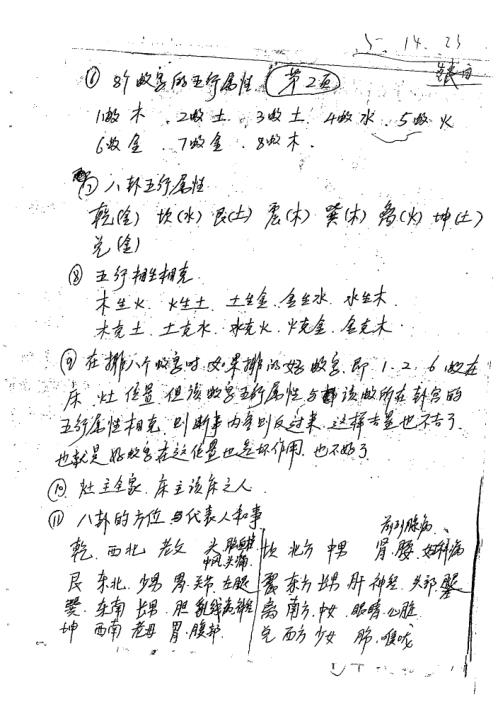 5.14.23
⑥ 8个数字的五行属性 第2页
1数木、2数土、3数土、4数水、5数火
6数金、7数金、8数木.
⑦ 八卦五行属性
乾(金) 坎(水) 艮(土) 震(木) 巽(木) 离(火) 坤(土)
兑(金)
⑧ 五行相生相克
木生火、火生土、土生金、金生水、水生木.
木克土、土克水、水克火、火克金、金克木.
⑨ 在排八个数字时,如果排的好数字,即1.2.6数在
床、灶位置,但该数字五行属性与该数所在卦宫的
五行属性相克,则断事内容则反过来,这样吉星也不吉了
也就是好数字在这位置也起坏作用,也不好了
⑩ 灶主全家、床主该床之人.
⑪ 八卦的方位与代表人和事
前列腺病
乾、西北、老父、头 中风头痛 坎 北方 中男 肾.腰.妇科病
艮 东北、少男 胃 左腿 震 东方 长男 肝 神经、头部
巽、东南 长男、胆 乳线病 离 南方、中女、眼睛、心脏
坤 西南 老母 胃.腹部. 兑 西方 少女 肺、喉咙